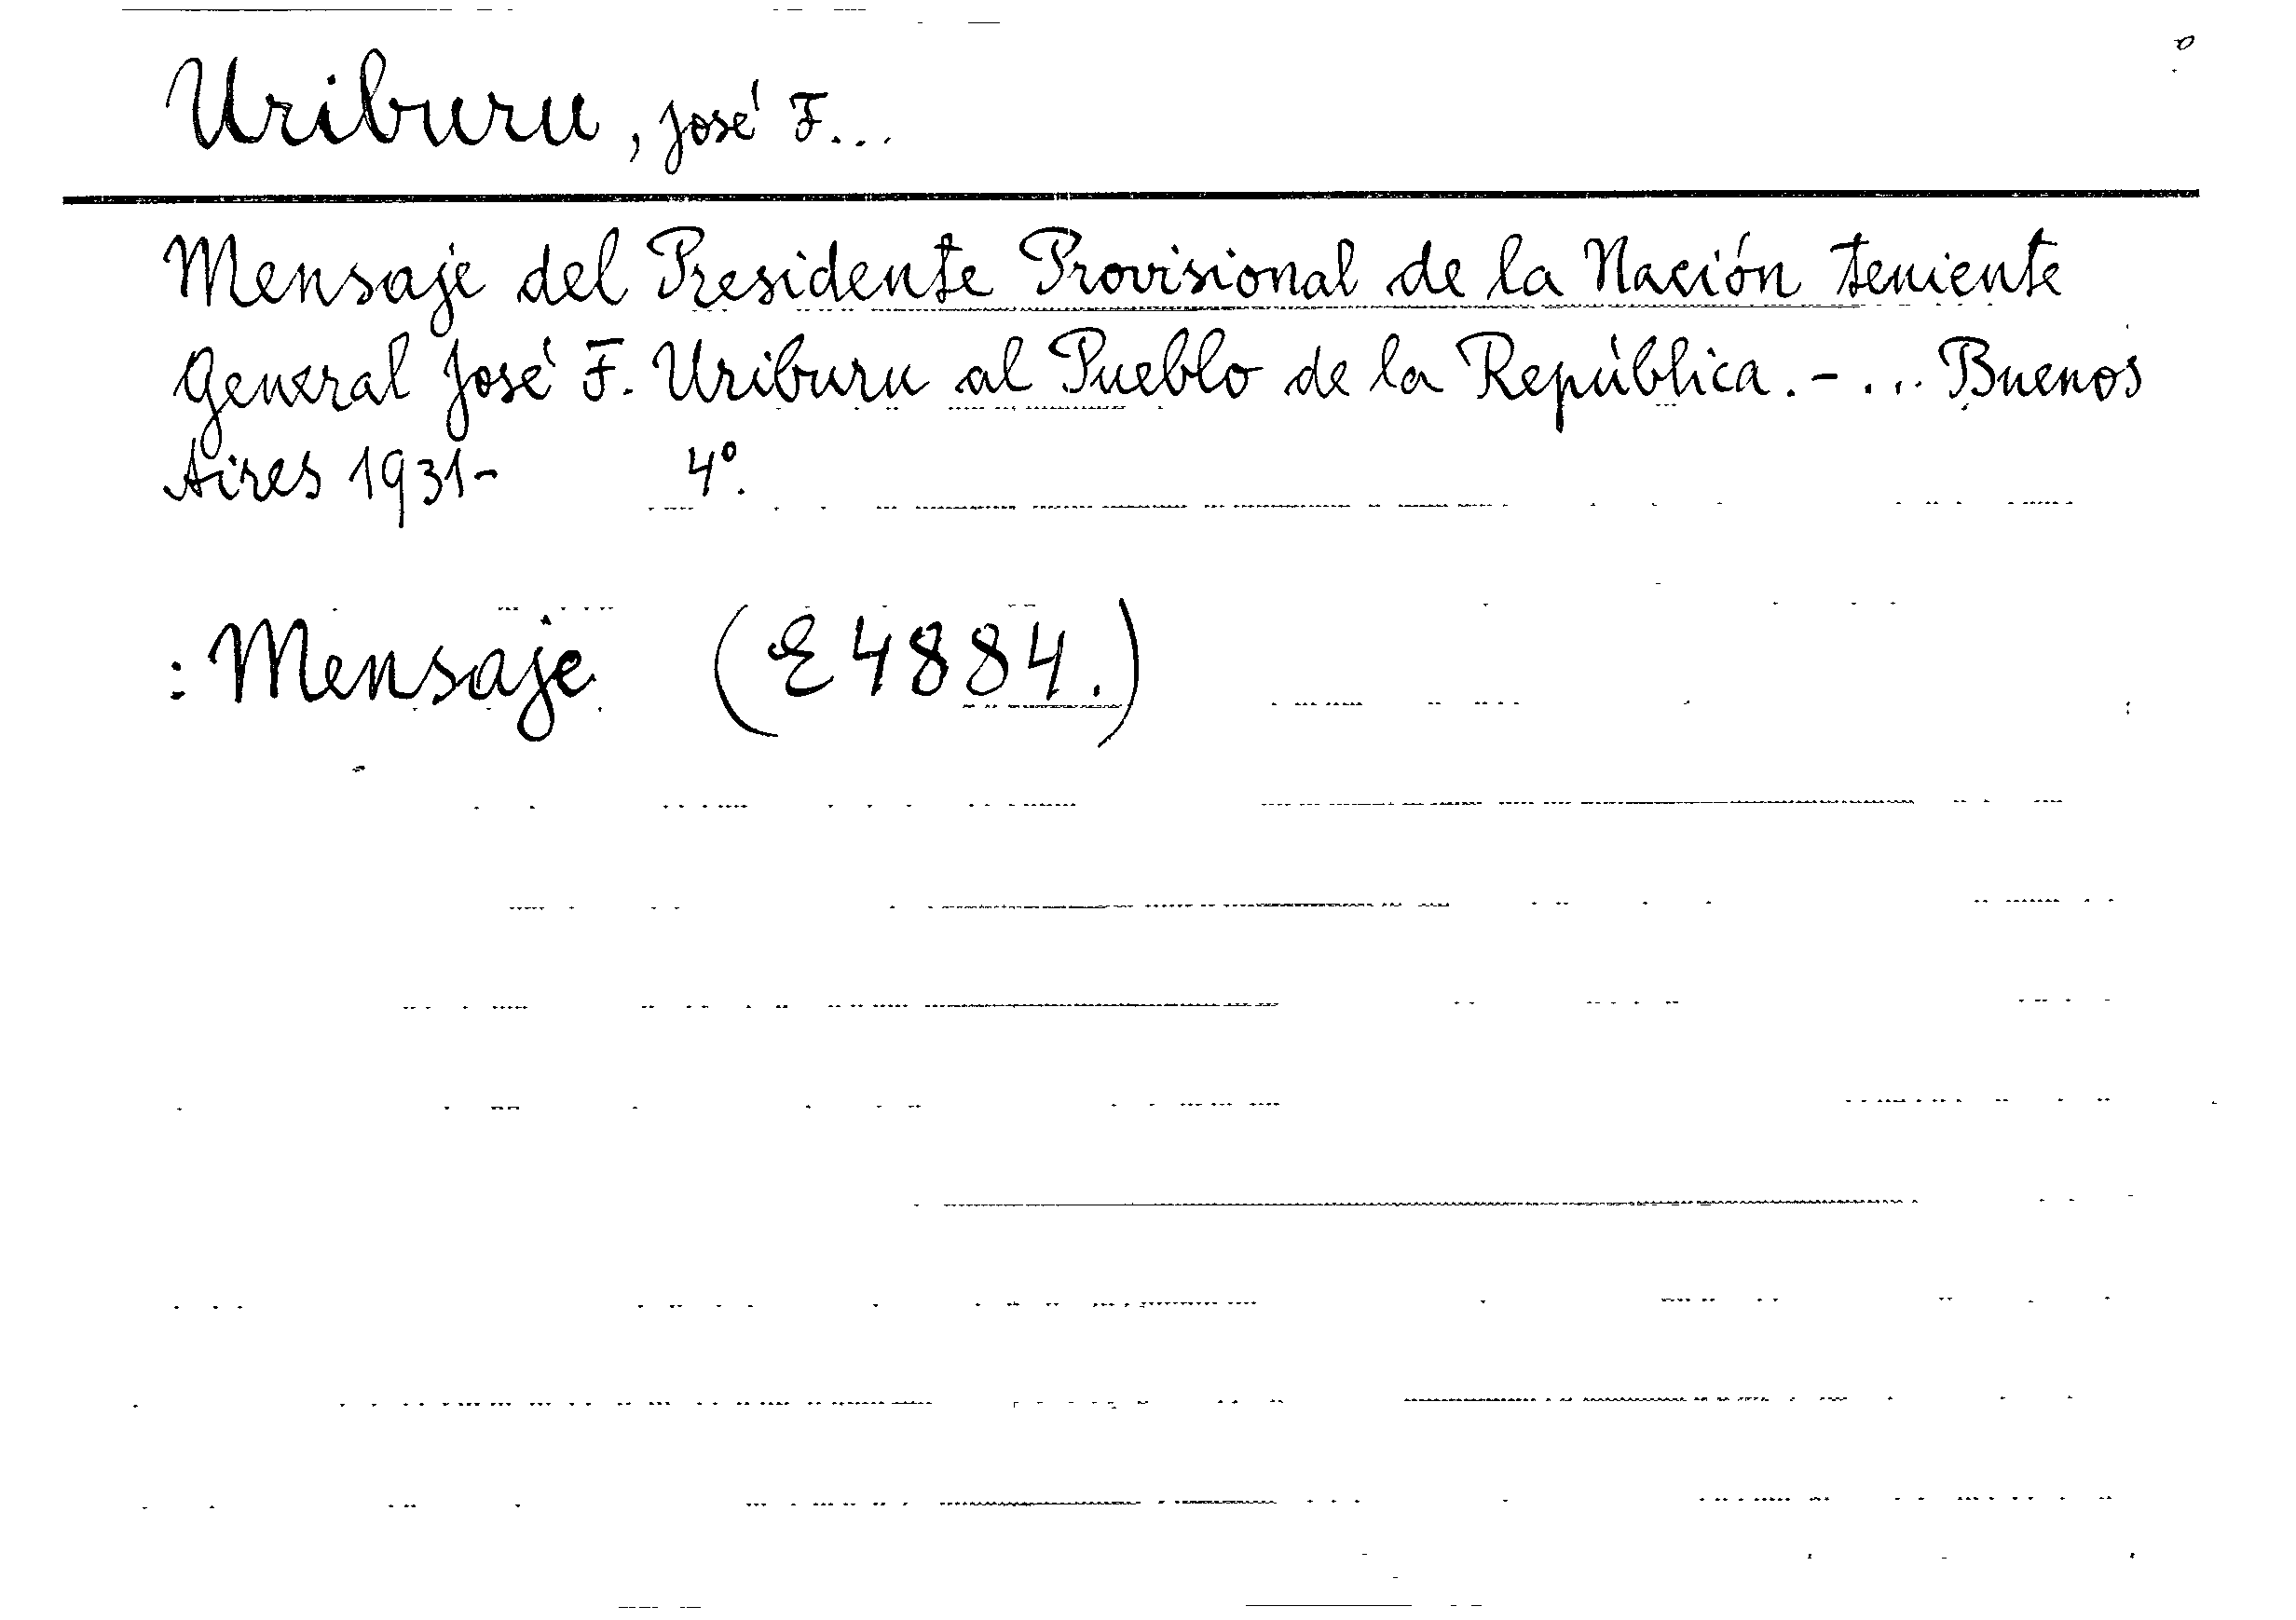 Uriburu, José F...
Mensaje del Presidente Provisional de la Nación teniente
General José F. Uriburu al Pueblo de la República.-... Buenos
Aires 1931- 4º.
: Mensaje (E4884.)